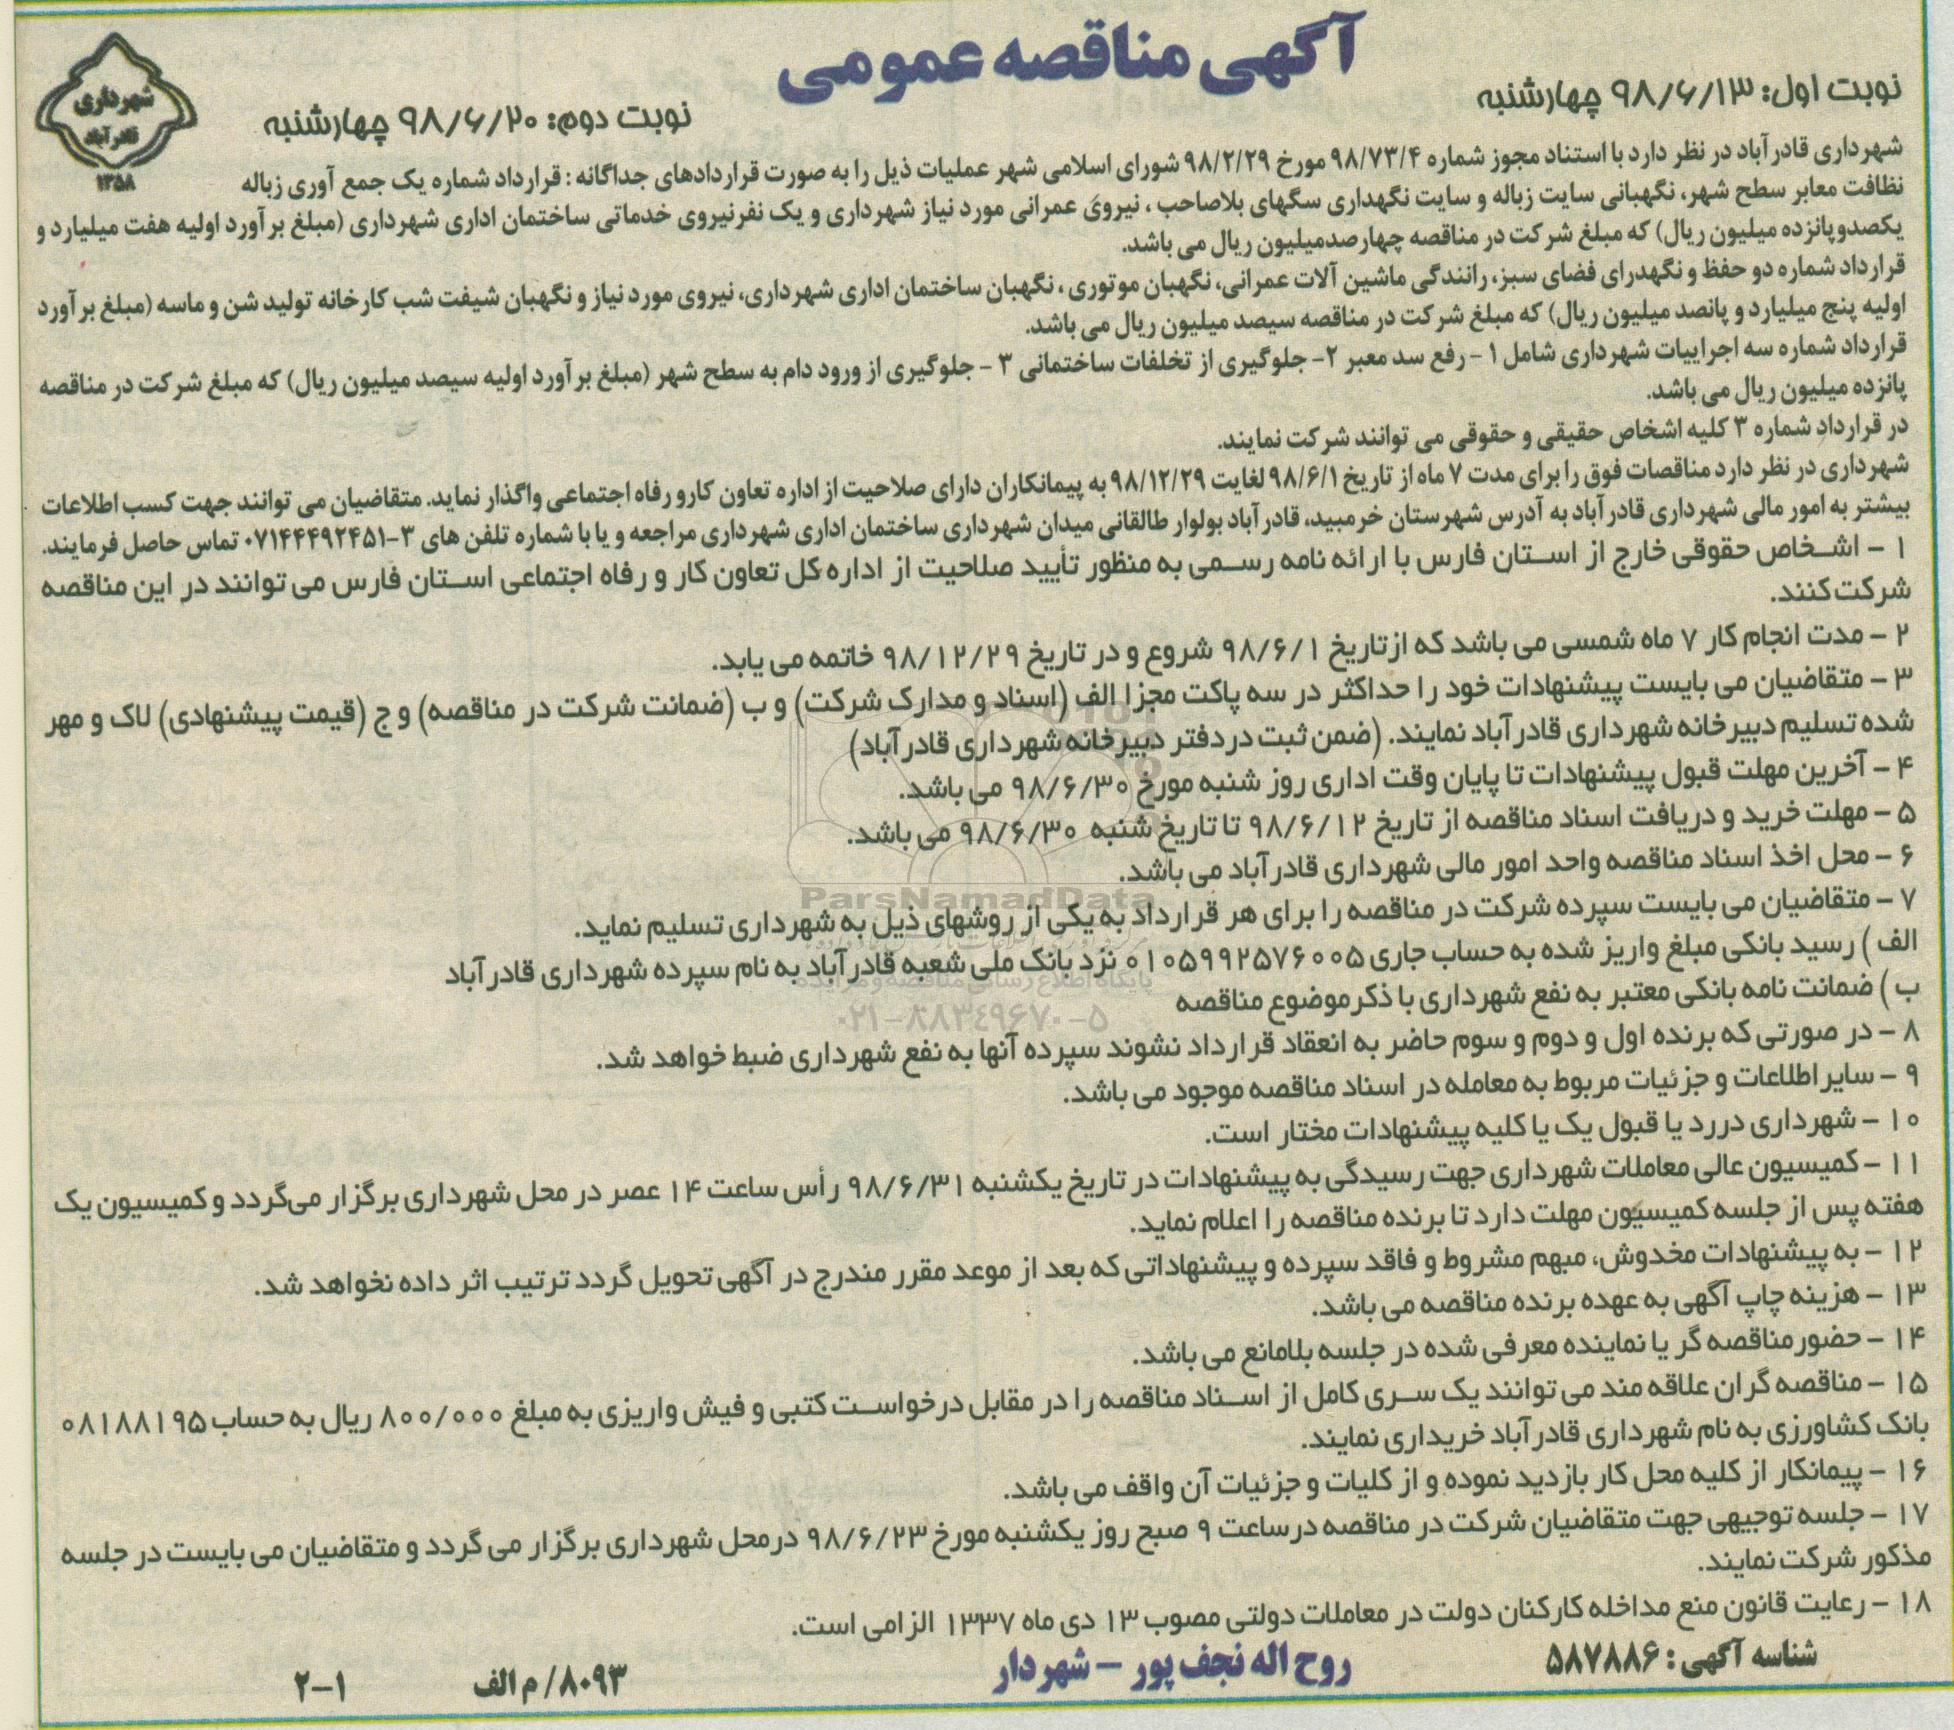 آگهی مناقصه عمومی
نوبت اول: ۹۸/۶/۱۳ چهارشنبه
نوبت دوم: ۹۸/۶/۲۰ چهارشنبه
شهرداری
قادرآباد
۱۳۵۸
شهرداری قادرآباد در نظر دارد با استناد مجوز شماره ۹۸/۷۳/۴ مورخ ۹۸/۲/۲۹ شورای اسلامی شهر عملیات ذیل را به صورت قراردادهای جداگانه : قرارداد شماره یک جمع آوری زباله
نظافت معابر سطح شهر، نگهبانی سایت زباله و سایت نگهداری سگهای بلاصاحب ، نیروی عمرانی مورد نیاز شهرداری و یک نفرنیروی خدماتی ساختمان اداری شهرداری (مبلغ برآورد اولیه هفت میلیارد و
یکصدوپانزده میلیون ریال) که مبلغ شرکت در مناقصه چهارصدمیلیون ریال می باشد.
قرارداد شماره دو حفظ و نگهدرای فضای سبز، رانندگی ماشین آلات عمرانی، نگهبان موتوری ، نگهبان ساختمان اداری شهرداری، نیروی مورد نیاز و نگهبان شیفت شب کارخانه تولید شن و ماسه (مبلغ برآورد
اولیه پنج میلیارد و پانصد میلیون ریال) که مبلغ شرکت در مناقصه سیصد میلیون ریال می باشد.
قرارداد شماره سه اجراییات شهرداری شامل ۱ - رفع سد معبر ۲- جلوگیری از تخلفات ساختمانی ۳ - جلوگیری از ورود دام به سطح شهر (مبلغ برآورد اولیه سیصد میلیون ریال) که مبلغ شرکت در مناقصه
پانزده میلیون ریال می باشد.
در قرارداد شماره ۳ کلیه اشخاص حقیقی و حقوقی می توانند شرکت نمایند.
شهرداری در نظر دارد مناقصات فوق را برای مدت ۷ ماه از تاریخ ۹۸/۶/۱ لغایت ۹۸/۱۲/۲۹ به پیمانکاران دارای صلاحیت از اداره تعاون کارو رفاه اجتماعی واگذار نماید. متقاضیان می توانند جهت کسب اطلاعات
بیشتر به امور مالی شهرداری قادرآباد به آدرس شهرستان خرمبید، قادرآباد بولوار طالقانی میدان شهرداری ساختمان اداری شهرداری مراجعه و یا با شماره تلفن های ۳-۰۷۱۴۴۴۹۲۴۵۱ تماس حاصل فرمایند.
۱ - اشخاص حقوقی خارج از استان فارس با ارائه نامه رسمی به منظور تأیید صلاحیت از اداره کل تعاون کار و رفاه اجتماعی استان فارس می توانند در این مناقصه
شرکت کنند.
۲ - مدت انجام کار ۷ ماه شمسی می باشد که ازتاریخ ۹۸/۶/۱ شروع و در تاریخ ۹۸/۱۲/۲۹ خاتمه می یابد.
۳ - متقاضیان می بایست پیشنهادات خود را حداکثر در سه پاکت مجزا الف (اسناد و مدارک شرکت) و ب (ضمانت شرکت در مناقصه) و ج (قیمت پیشنهادی) لاک و مهر
شده تسلیم دبیرخانه شهرداری قادرآباد نمایند. (ضمن ثبت دردفتر دبیرخانه شهرداری قادرآباد)
۴ - آخرین مهلت قبول پیشنهادات تا پایان وقت اداری روز شنبه مورخ ۹۸/۶/۳۰ می باشد.
۵ - مهلت خرید و دریافت اسناد مناقصه از تاریخ ۹۸/۶/۱۲ تا تاریخ شنبه ۹۸/۶/۳۰ می باشد.
۶ - محل اخذ اسناد مناقصه واحد امور مالی شهرداری قادرآباد می باشد.
ParsNamadData
۷ - متقاضیان می بایست سپرده شرکت در مناقصه را برای هر قرارداد به یکی از روشهای ذیل به شهرداری تسلیم نماید.
الف ) رسید بانکی مبلغ واریز شده به حساب جاری ۰۱۰۵۹۹۲۵۷۶۰۰۵ نزد بانک ملی شعبه قادرآباد به نام سپرده شهرداری قادرآباد
پایگاه اطلاع رسانی مناقصه و مزایده
ب ) ضمانت نامه بانکی معتبر به نفع شهرداری با ذکرموضوع مناقصه
۰۲۱-۸۸۳۴۹۶۷۰-۵
۸ - در صورتی که برنده اول و دوم و سوم حاضر به انعقاد قرارداد نشوند سپرده آنها به نفع شهرداری ضبط خواهد شد.
۹ - سایر اطلاعات و جزئیات مربوط به معامله در اسناد مناقصه موجود می باشد.
۱۰ - شهرداری دررد یا قبول یک یا کلیه پیشنهادات مختار است.
۱۱ - کمیسیون عالی معاملات شهرداری جهت رسیدگی به پیشنهادات در تاریخ یکشنبه ۹۸/۶/۳۱ رأس ساعت ۱۴ عصر در محل شهرداری برگزار می‌گردد و کمیسیون یک
هفته پس از جلسه کمیسیون مهلت دارد تا برنده مناقصه را اعلام نماید.
۱۲ - به پیشنهادات مخدوش، مبهم مشروط و فاقد سپرده و پیشنهاداتی که بعد از موعد مقرر مندرج در آگهی تحویل گردد ترتیب اثر داده نخواهد شد.
۱۳ - هزینه چاپ آگهی به عهده برنده مناقصه می باشد.
۱۴ - حضورمناقصه گر یا نماینده معرفی شده در جلسه بلامانع می باشد.
۱۵ - مناقصه گران علاقه مند می توانند یک سری کامل از اسناد مناقصه را در مقابل درخواست کتبی و فیش واریزی به مبلغ ۸۰۰/۰۰۰ ریال به حساب ۰۸۱۸۸۱۹۵
بانک کشاورزی به نام شهرداری قادرآباد خریداری نمایند.
۱۶ - پیمانکار از کلیه محل کار بازدید نموده و از کلیات و جزئیات آن واقف می باشد.
۱۷ - جلسه توجیهی جهت متقاضیان شرکت در مناقصه درساعت ۹ صبح روز یکشنبه مورخ ۹۸/۶/۲۳ درمحل شهرداری برگزار می گردد و متقاضیان می بایست در جلسه
مذکور شرکت نمایند.
۱۸ - رعایت قانون منع مداخله کارکنان دولت در معاملات دولتی مصوب ۱۳ دی ماه ۱۳۳۷ الزامی است.
شناسه آگهی : ۵۸۷۸۸۶
روح اله نجف پور - شهردار
۸۰۹۳/ م الف
۲-۱